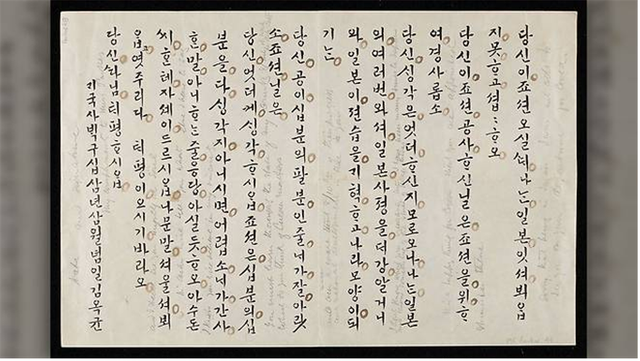 당신이죠션오실ᄯᅢ나는일본잇셔뵈읍
지못ᄒᆞ고셥〻ᄒᆞ오
당신이죠션공사ᄒᆞ신닐은죠션을위ᄒᆞ
여경사롭소
당신ᄉᆡᆼ각은엇더ᄒᆞ신지모로오나나는일본
의여러번와셔일본사졍을더강알거니
와일본이젼습을게혁ᄒᆞ고나라모양이되
기는
당신공이십분의팔분인줄네가잘아라
소죠션닐은
당신엇더케ᄉᆡᆼ각ᄒᆞ시읍죠션은십분의십
분을다ᄉᆡᆼ각지아니시면어렵소네가간사
ᄒᆞᆫ말아니ᄒᆞ는줄응당아실듯ᄒᆞ오아수돈
씨ᄒᆞᆫ테자셰이드르시읍나문말셔울셔뵈
읍엿주리다 ᄐᆡ평이오시기바라오
당신 ᄐᆡ평ᄒᆞ시읍
긔국사빅구십삼년삼월념일김옥균